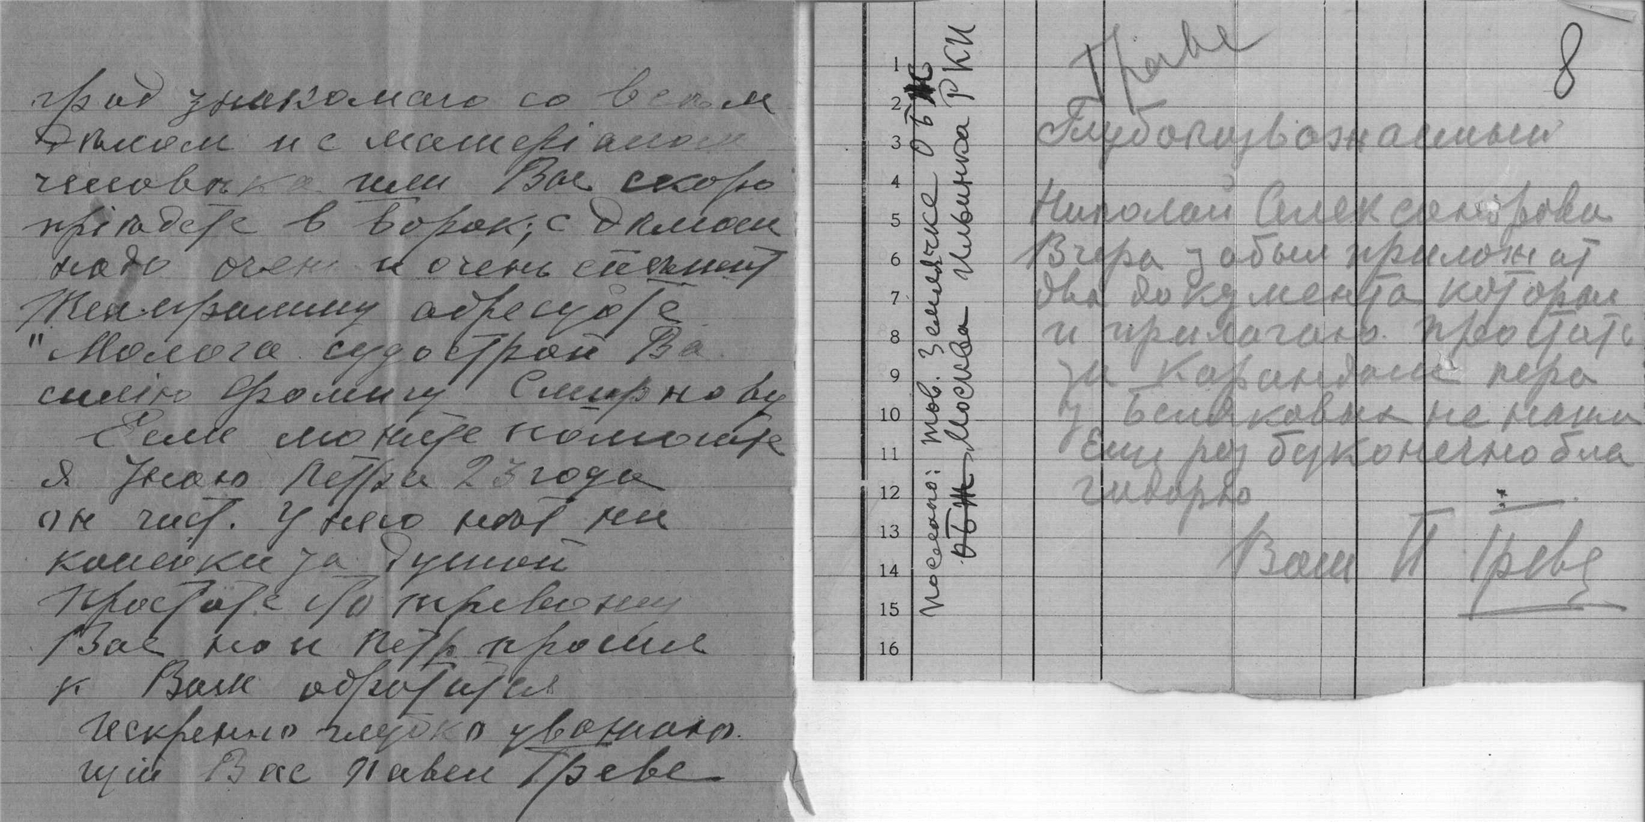 град знакомаго со всем
деломъ и с матеріалом
человека или Вы скоро
пріедете в
надо очень и очень
телеграмму адресуйте
"Молога судострой Ва
силію Фомичу Смирнову
Если можите помогите
я знаю Петра 23 года
он чист. У него нет ни
копейки за душой
Простите что тревожу
Вас но и Петр просил
к Вам обратится
искренно глубоко уважаю
щій Вас Павел Греве
Греве
8
Глубокоуважаемый
Николай Александрович
Вчера забыл приложит
два документа которые
и прилагаю простите
за карандаш пера
у Беляковых не наш
Ещу раз буконечно бла
гидарю
Ваш П Греве
Послано: тов. Землячке
Москва Ильинка РКИ
1
2
3
4
5
6
7
8
9
10
11
12
13
14
15
16